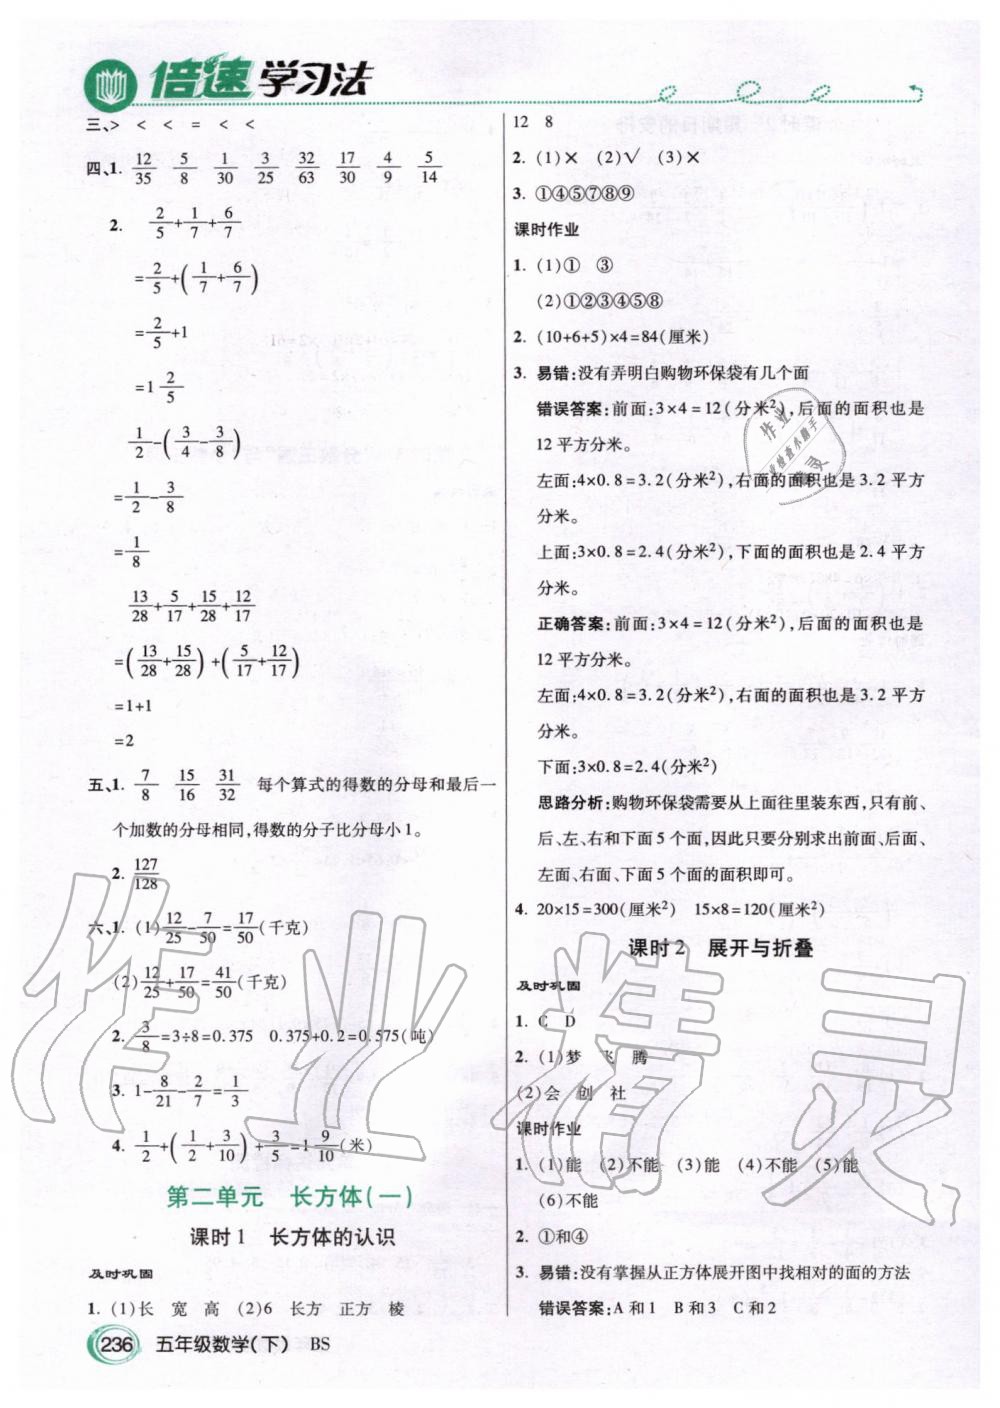 倍速学习法
三、> < < = < <
四、1. 12/35 5/8 1/30 3/25 32/63 17/30 4/9 5/14
2. 2/5+1/7+6/7
=2/5+(1/7+6/7)
=2/5+1
=1 2/5
1/2-(3/4-3/8)
=1/2-3/8
=1/8
13/28+5/17+15/28+12/17
=(13/28+15/28)+(5/17+12/17)
=1+1
=2
五、1. 7/8 15/16 31/32 每个算式的得数的分母和最后一
个加数的分母相同,得数的分子比分母小1。
2. 127/128
六、1. (1)12/25-7/50=17/50(千克)
(2)12/25+17/50=41/50(千克)
2. 3/8=3÷8=0.375 0.375+0.2=0.575(吨)
3. 1-8/21-2/7=1/3
4. 1/2+(1/2+3/10)+3/5=1 9/10(米)
第二单元 长方体(一)
课时1 长方体的认识
及时巩固
1. (1)长 宽 高 (2)6 长方 正方 棱
236 五年级数学(下) BS
12 8
2. (1)× (2)√ (3)×
3. ①④⑤⑦⑧⑨
课时作业
1. (1)① ③
(2)①②③④⑤⑧
2. (10+6+5)×4=84(厘米)
3. 易错:没有弄明白购物环保袋有几个面
错误答案:前面:3×4=12(分米²),后面的面积也是
12平方分米。
左面:4×0.8=3.2(分米²),右面的面积也是3.2平方
分米。
上面:3×0.8=2.4(分米²),下面的面积也是2.4平方
分米。
正确答案:前面:3×4=12(分米²),后面的面积也是
12平方分米。
左面:4×0.8=3.2(分米²),右面的面积也是3.2平方
分米。
下面:3×0.8=2.4(分米²)
思路分析:购物环保袋需要从上面往里装东西,只有前、
后、左、右和下面5个面,因此只要分别求出前面、后面、
左面、右面、下面5个面的面积即可。
4. 20×15=300(厘米²) 15×8=120(厘米²)
课时2 展开与折叠
及时巩固
1. C D
2. (1)梦 飞 腾
(2)会 创 社
课时作业
1. (1)能 (2)不能 (3)能 (4)不能 (5)能
(6)不能
2. ①和④
3. 易错:没有掌握从正方体展开图中找相对的面的方法
错误答案:A和1 B和3 C和2
作业精灵